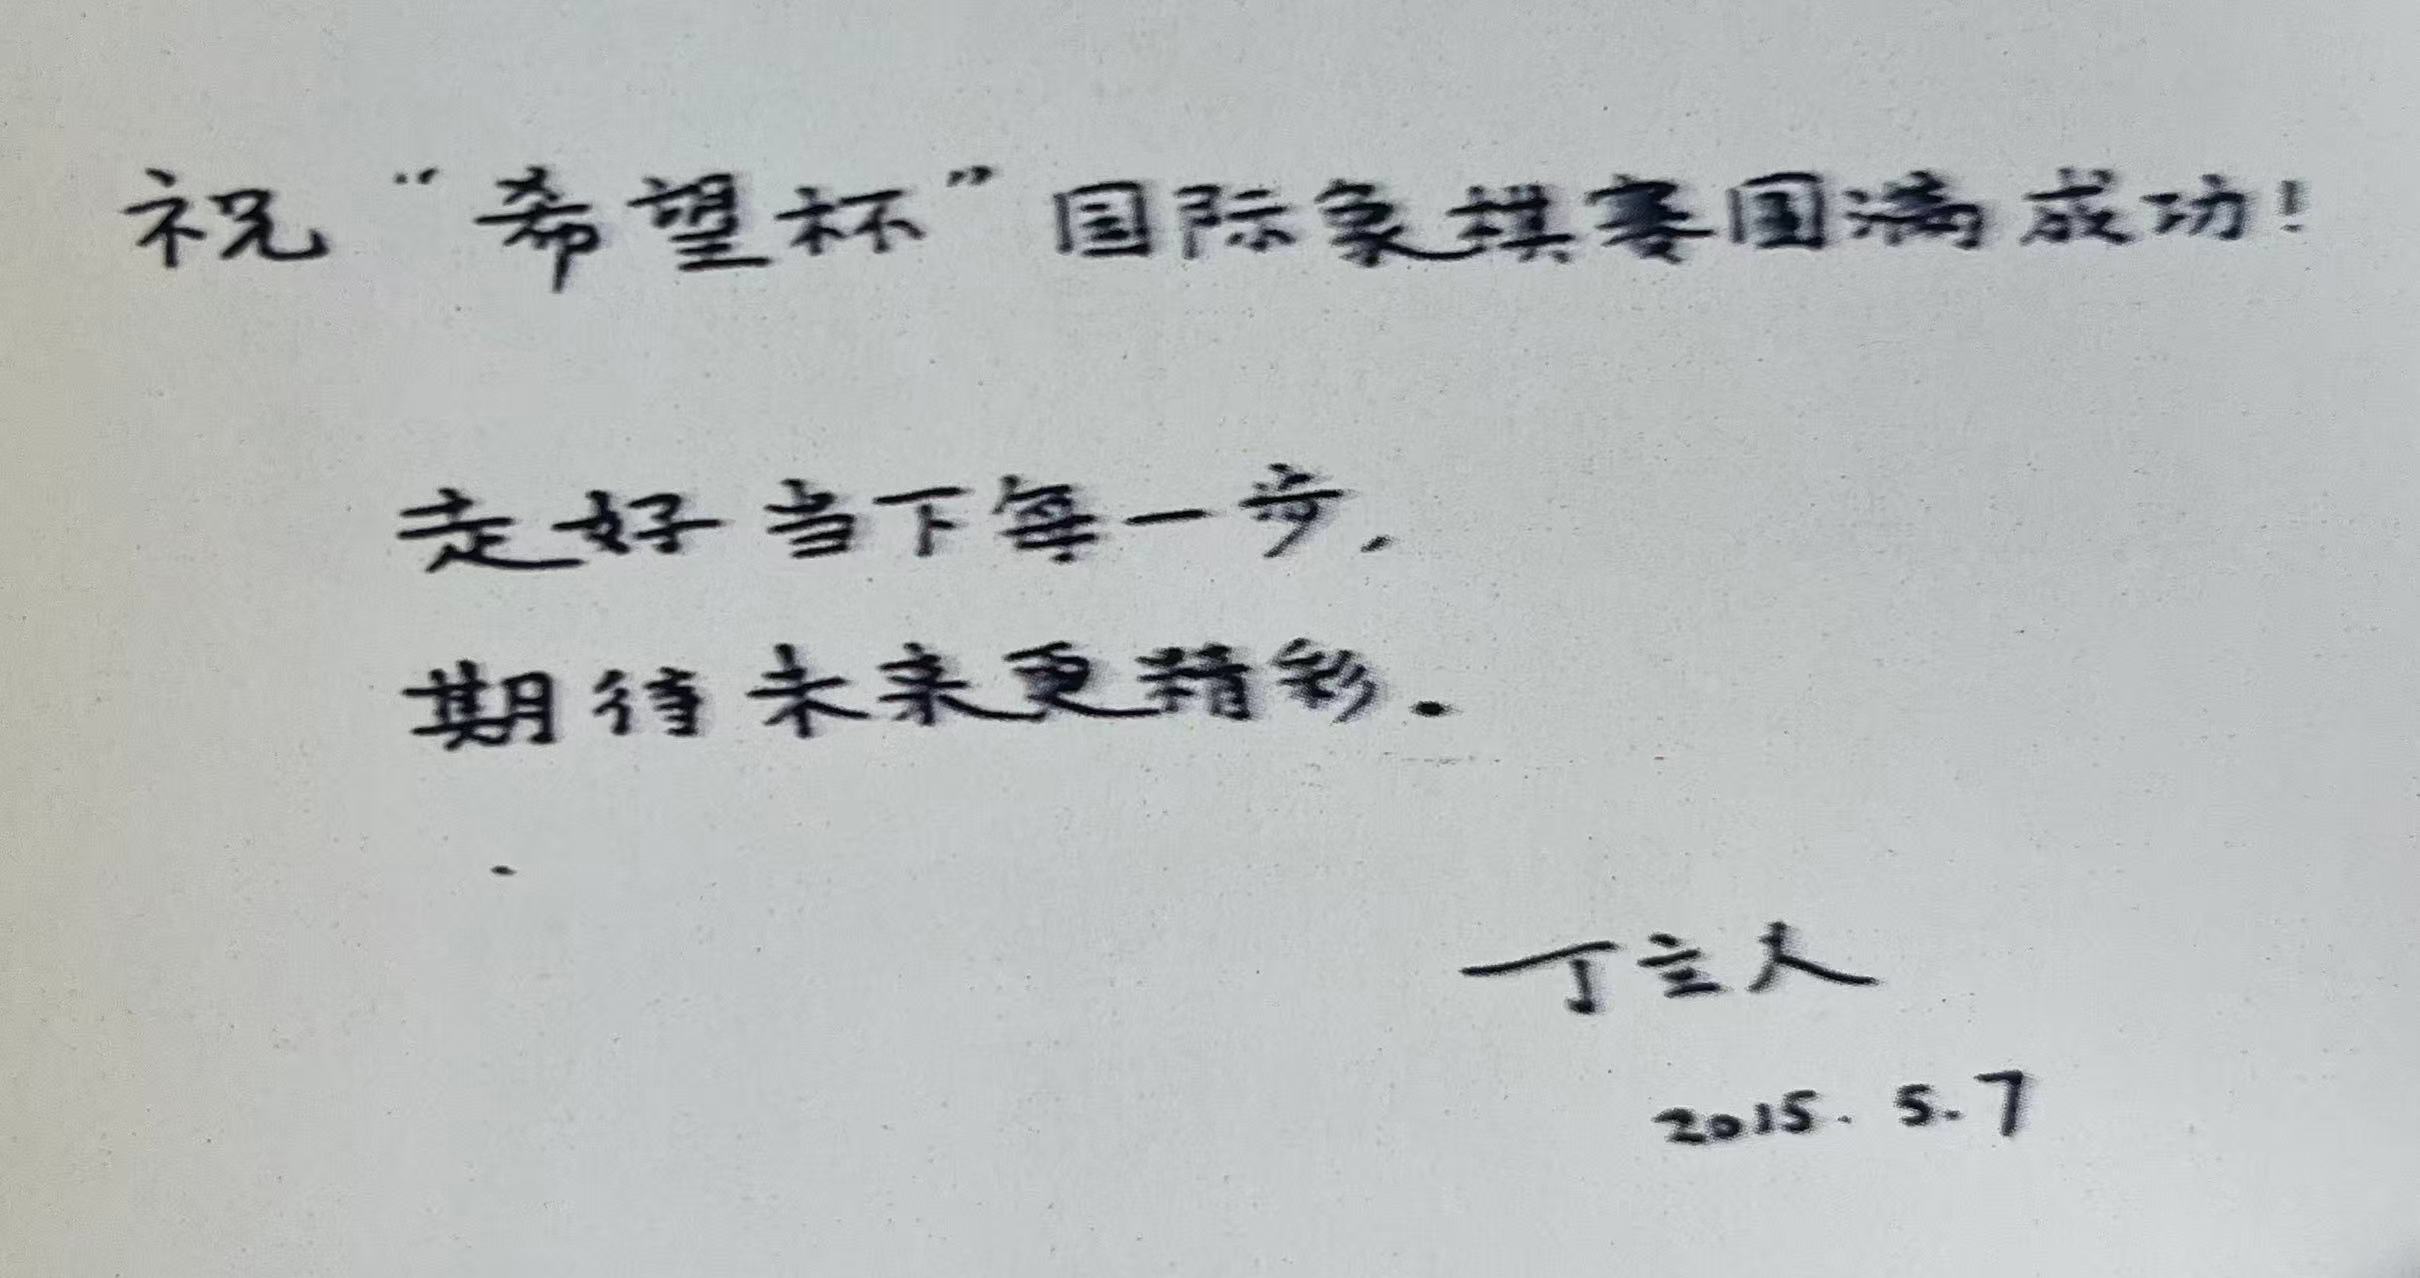 祝“希望杯”国际象棋赛圆满成功！
走好当下每一步，
期待未来更精彩．
丁立人
2015．5．7